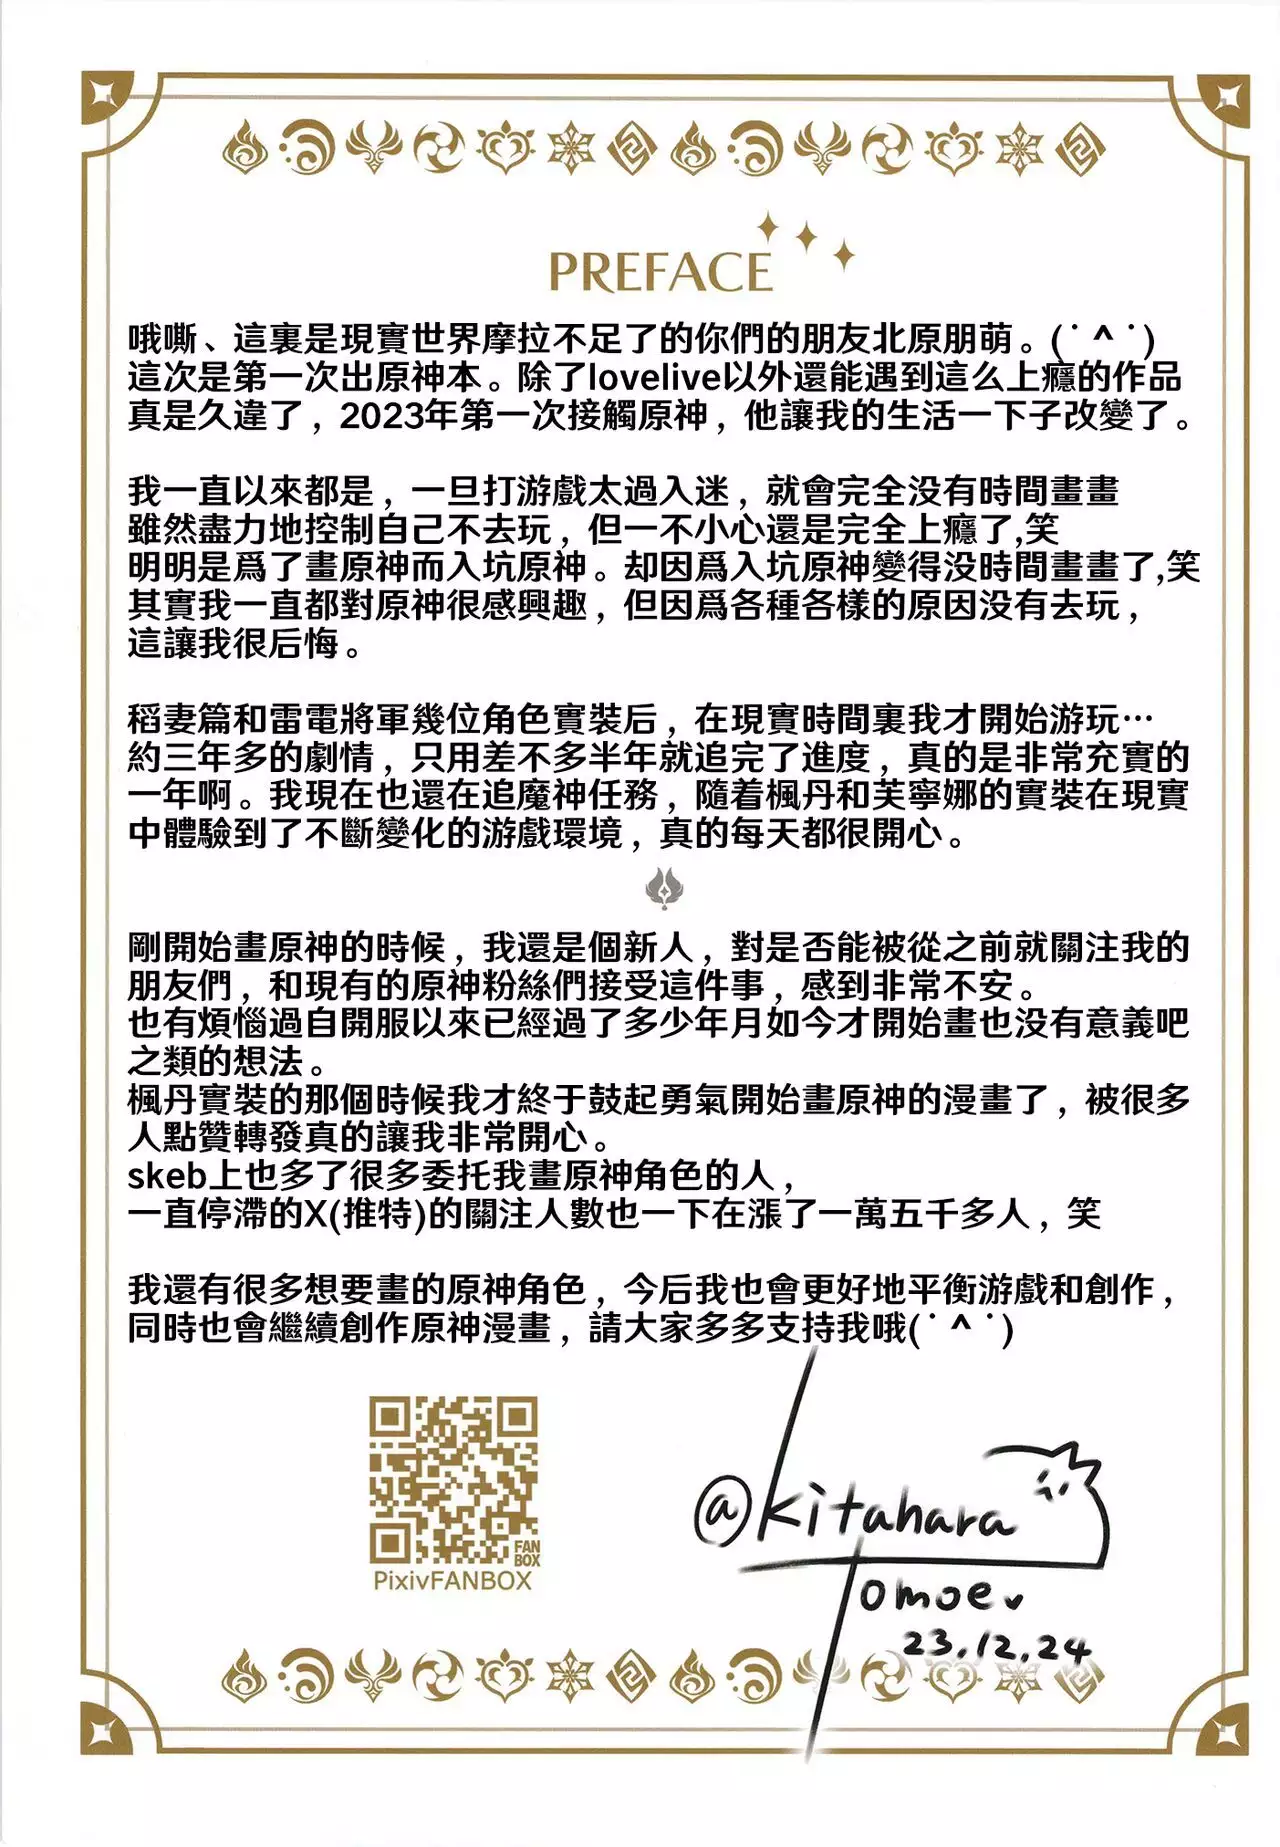 PREFACE
哦嘶、這裏是現實世界摩拉不足了的你們的朋友北原朋萌。(˙^˙)
這次是第一次出原神本。除了lovelive以外還能遇到這么上癮的作品
真是久違了，2023年第一次接觸原神，他讓我的生活一下子改變了。
我一直以來都是，一旦打游戲太過入迷，就會完全没有時間畫畫
雖然盡力地控制自己不去玩，但一不小心還是完全上癮了,笑
明明是爲了畫原神而入坑原神。却因爲入坑原神變得没時間畫畫了,笑
其實我一直都對原神很感興趣，但因爲各種各樣的原因没有去玩，
這讓我很后悔。
稻妻篇和雷電將軍幾位角色實裝后，在現實時間裏我才開始游玩…
約三年多的劇情，只用差不多半年就追完了進度，真的是非常充實的
一年啊。我現在也還在追魔神任務，隨着楓丹和芙寧娜的實裝在現實
中體驗到了不斷變化的游戲環境，真的每天都很開心。
剛開始畫原神的時候，我還是個新人，對是否能被從之前就關注我的
朋友們，和現有的原神粉絲們接受這件事，感到非常不安。
也有煩惱過自開服以來已經過了多少年月如今才開始畫也没有意義吧
之類的想法。
楓丹實裝的那個時候我才終于鼓起勇氣開始畫原神的漫畫了，被很多
人點贊轉發真的讓我非常開心。
skeb上也多了很多委托我畫原神角色的人，
一直停滯的X(推特)的關注人數也一下在漲了一萬五千多人，笑
我還有很多想要畫的原神角色，今后我也會更好地平衡游戲和創作，
同時也會繼續創作原神漫畫，請大家多多支持我哦(˙^˙)
FAN
BOX
PixivFANBOX
@kitahara
Tomoe
23.12.24